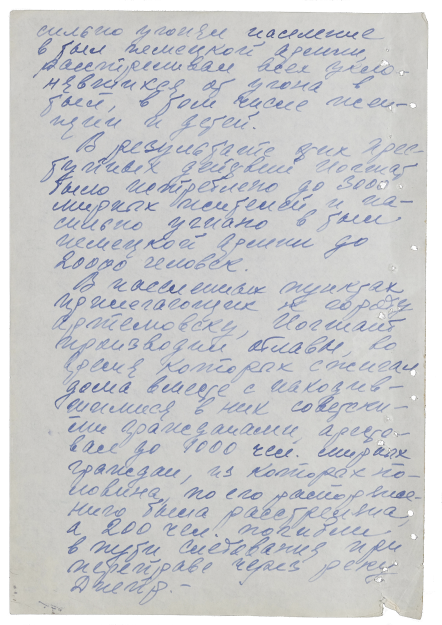 сильно угонял население
в тыл немецкой армии,
расстреливал всех укло-
нявшихся от угона в
тыл, в том числе жен-
щин и детей.
В результате этих прес-
тупных действий
было истреблено до 3000
мирных жителей и на-
сильно угнано в тыл
немецкой армии до
20000 человек.
В населенных пунктах
прилегающих к городу
Артемовску,
производил облавы, во
время которых сжигал
дома вместе с находив-
шимися в них советски-
ми гражданами, аресто-
вал до 1000 чел. мирных
граждан, из которых по-
ловина, по его распоряже-
нию была расстреляна,
а 200 чел. погибли
в пути следования при
переправе через реку
Днепр.-